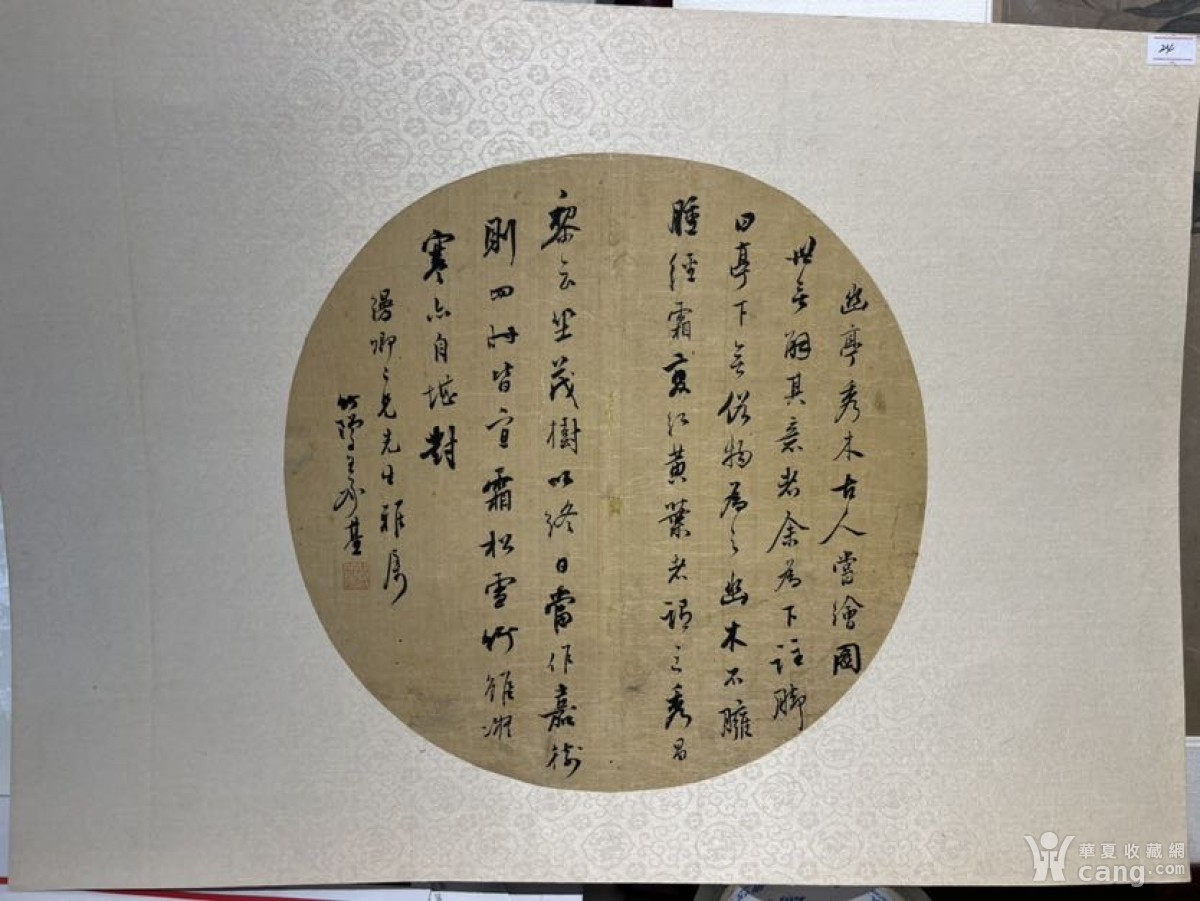 幽亭秀木古人嘗繪圖
世無解其意者余為下註腳
曰亭下無俗物為之幽木不臃
腫經霜變紅黃葉者謂之秀昌
黎云坐茂樹以終日當作嘉樹
則四時皆宜霜松雪竹雖凝
寒亦自堪對
卿兄先生雅屬
竹
華夏收藏網
cang.com